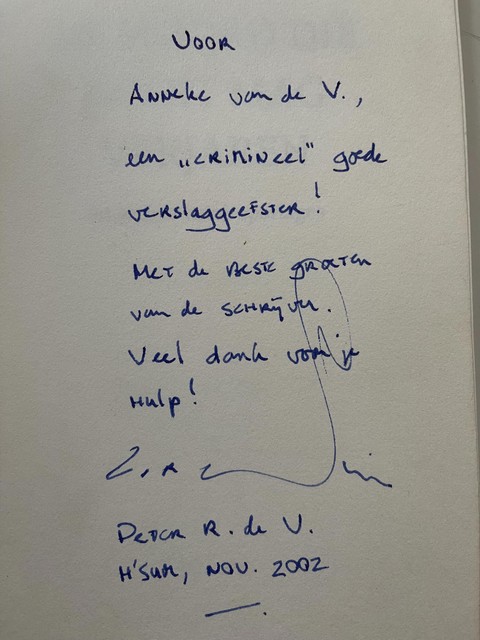 VOOR
Anneke van de V.,
een „crimineel" goede
verslaggeefster!
Met de beste groeten
van de schrijver.
Veel dank voor je
hulp!
Peter R. de V.
H'sum, Nov. 2002